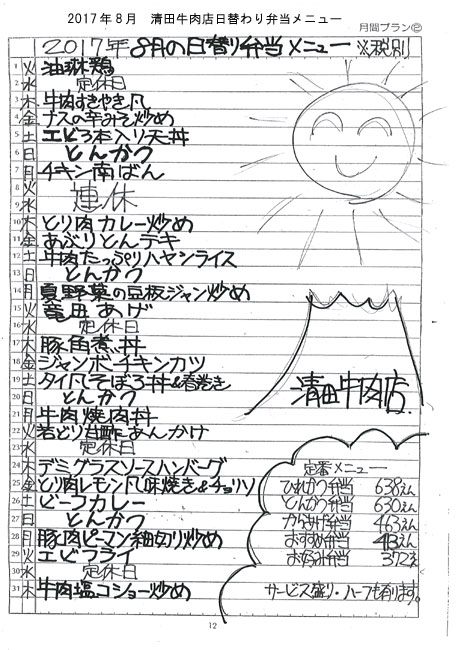 2017年8月 清田牛肉店日替わり弁当メニュー
月間プラン②
2017年8月の日替り弁当メニュー ※税別
1 火 油淋鶏
2 水 定休日
3 木 牛肉すきやき風
4 金 ナスの辛みそ炒め
5 土 エビ3本入り天丼
6 日 とんかつ
7 月 チキン南ばん
8 火 連休
9 水
10 木 とり肉カレー炒め
11 金 あぶりとんテキ
12 土 牛肉たっぷりハヤシライス
13 日 とんかつ
14 月 夏野菜の豆板ジャン炒め
15 火 竜田あげ
16 水 定休日
17 木 豚角煮丼
18 金 ジャンボチキンカツ
19 土 タイ風そぼろ丼&春巻き
20 日 とんかつ
21 月 牛肉焼肉丼
22 火 若どり甘酢あんかけ
23 水 定休日
24 木 デミグラスソースハンバーグ
25 金 とり肉レモン風味焼き&チョリソ
26 土 ビーフカレー
27 日 とんかつ
28 月 豚肉ピーマン細切り炒め
29 火 エビフライ
30 水 定休日
31 木 牛肉塩コショー炒め
清田牛肉店
定番メニュー
ひれかつ弁当 638えん
とんかつ弁当 630えん
からあげ弁当 463えん
おすすめ弁当 413えん
お好み弁当 372えん
サービス盛り・ハーフも有ります。
12